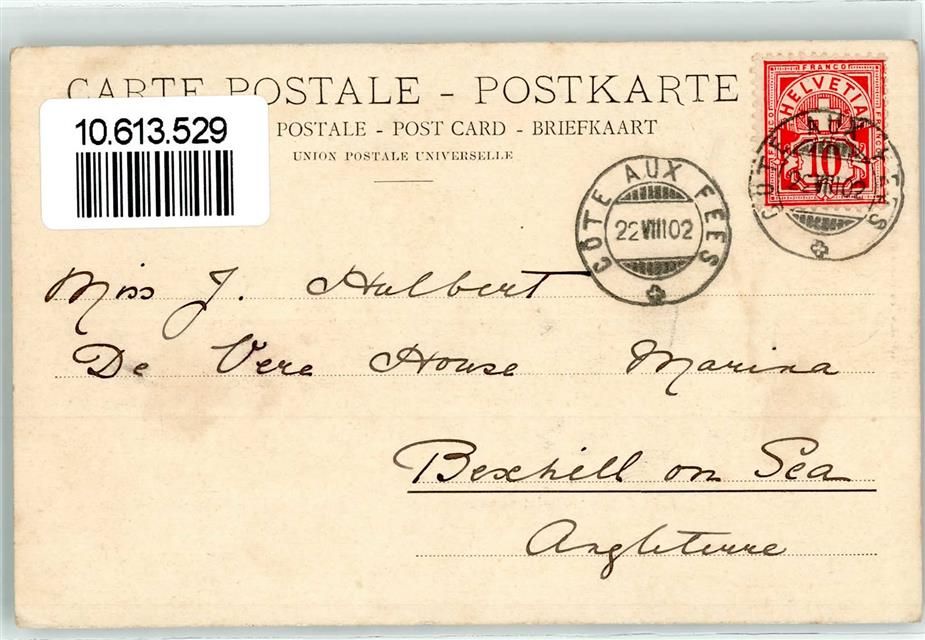 CARTE POSTALE - POSTKARTE
10.613.529
POSTALE - POST CARD - BRIEFKAART
UNION POSTALE UNIVERSELLE
FRANCO
HELVETIA
10
CÔTE AUX FEES
22 VIII 02
CÔTE AUX FEES
VIII 02
Miss J. Hulbert
De Vere House Marina
Bexhill on Sea
Angleterre